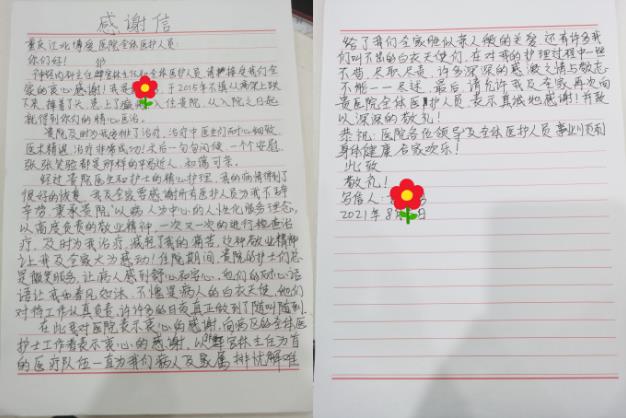 感谢信
重庆江北博度医院全体医护人员:
你们好!
神经内科主任 全体医护人员,请
的衷心感谢!我是 于2015年不慎从
下来,摔着了头,患上了癫痫 入住贵院,从入院之日起
就得到你们的精心医治。
贵院及时为我安排了治疗,治疗中医生们耐心细致,
医术精湛,治疗非常成功!术后一句句问候,一个个安慰,
张张笑脸都是那样的平易近人,和蔼可亲。
经过贵院医生和护士的精心护理,我的病情得到了
很好的恢复。我及全家要感谢所有医护人员为我不辞
辛劳,秉承贵院"以病人为中心的人性化服务理念,
以高度负责的敬业精神,一次又一次的进行检查治
疗,及时为我治疗,减轻了我的痛苦,这种敬业精神
让我及全家大为感动!住院期间,贵院的护士们总
是微笑服务,让病人感到舒心和安心,她们的耐心话
语让我如春风如沐,不愧是病人的白衣天使,她们
对待工作认真负责,许许多多的日夜真正做到了随叫随到。
在此要对医院表示衷心的感谢,向病区的全体医
护士工作者表示衷心的感谢,以 主任为首
的医疗队伍一直为我们病人及家属排忧解难
给了我们全家胜似亲人般的关爱,还有许多我
们叫不出的白衣天使们,在对我的护理过程中一丝
不苟,尽职尽责,许多深深的感激之情与敬志
不能一一尽述,最后,请允许我及全家再次向
贵医院全体医护人员表示真诚地感谢!并致
以深深的敬礼!
恭祝:医院各位领导及全体医护人员事业顺利
身体健康 合家欢乐!
此致
敬礼!
写信人:
2021年8 日